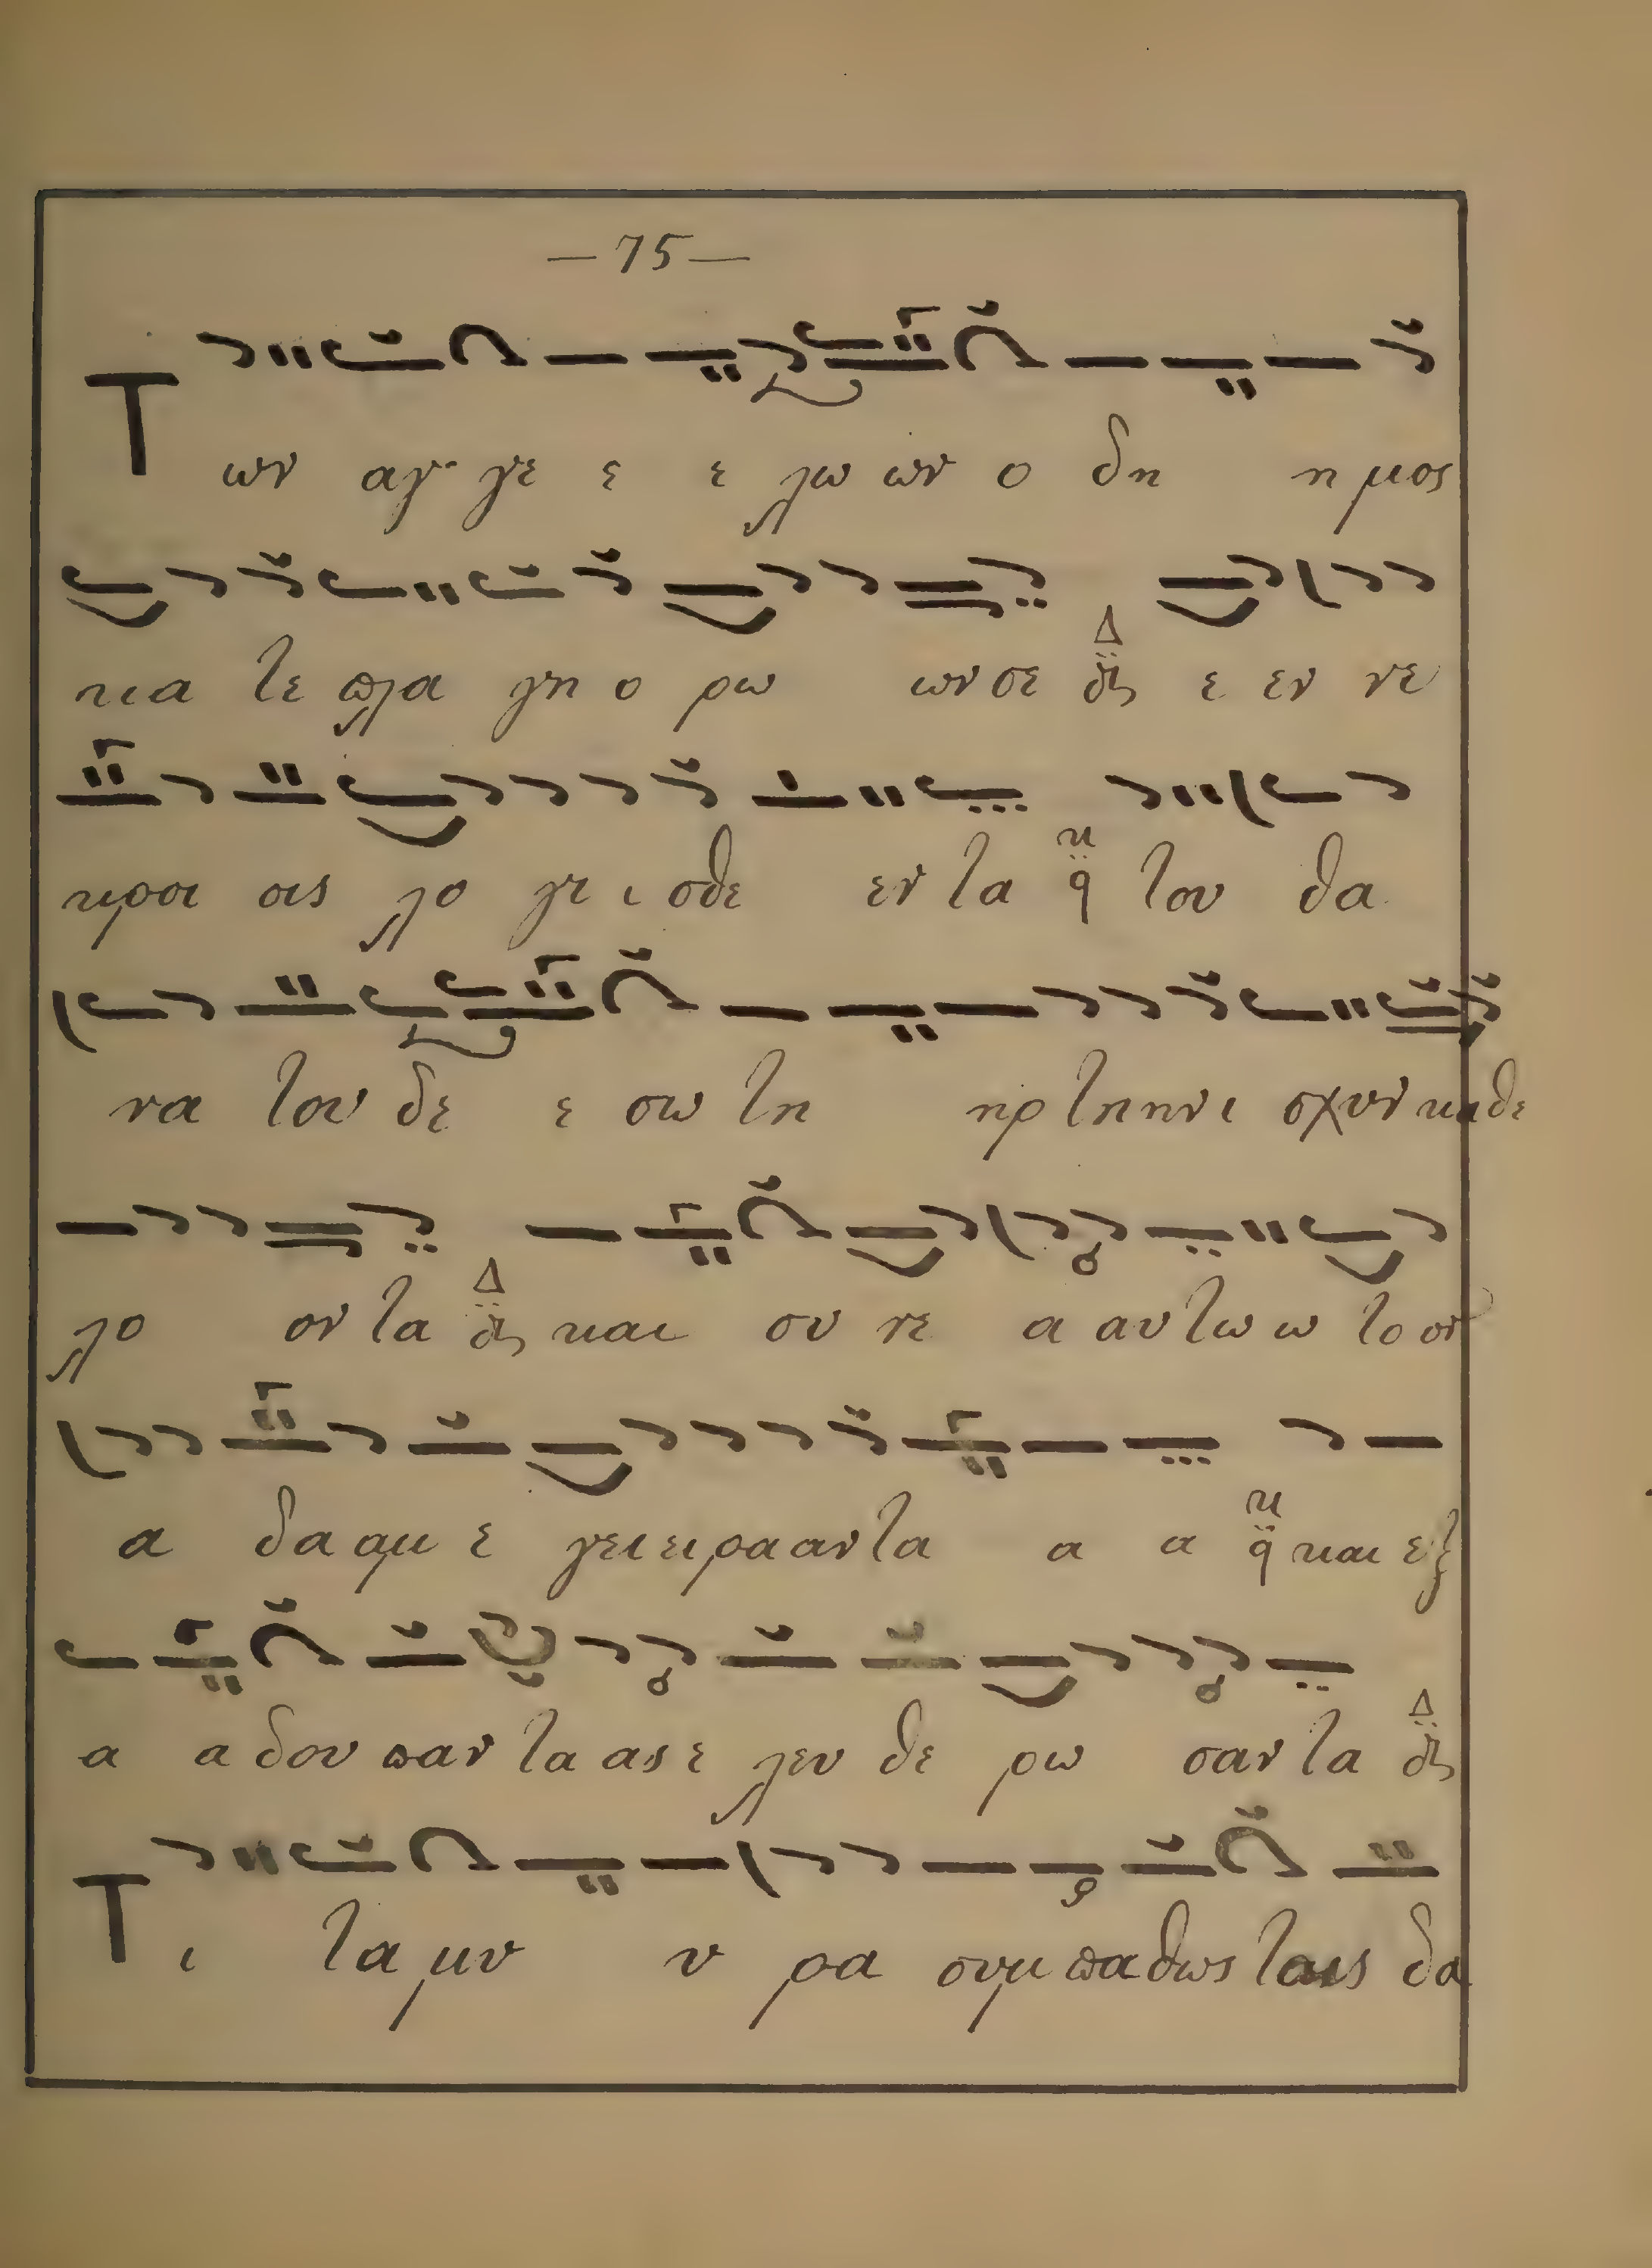 —75—
Των αγ γε ε ε λω ων ο δη η μος
κα τε πλα γη ο ρω ων σε Δ δι ε εν νε
κροι οις λο γι ι σθε εν τα κ q του θα
να του δε ε σω τη ηρ την ι σχυν καθε
λο ον τα Δ δι και συ νε α αυ τω ω το ον
α δα αμ ε γει ει ρα αν τα α α κ q και εξ
α α δου παν τα ας ε λευ θε ρω σαν τα Δ δι
Τι τα μυ υ ρα συμ παθως ταις δα